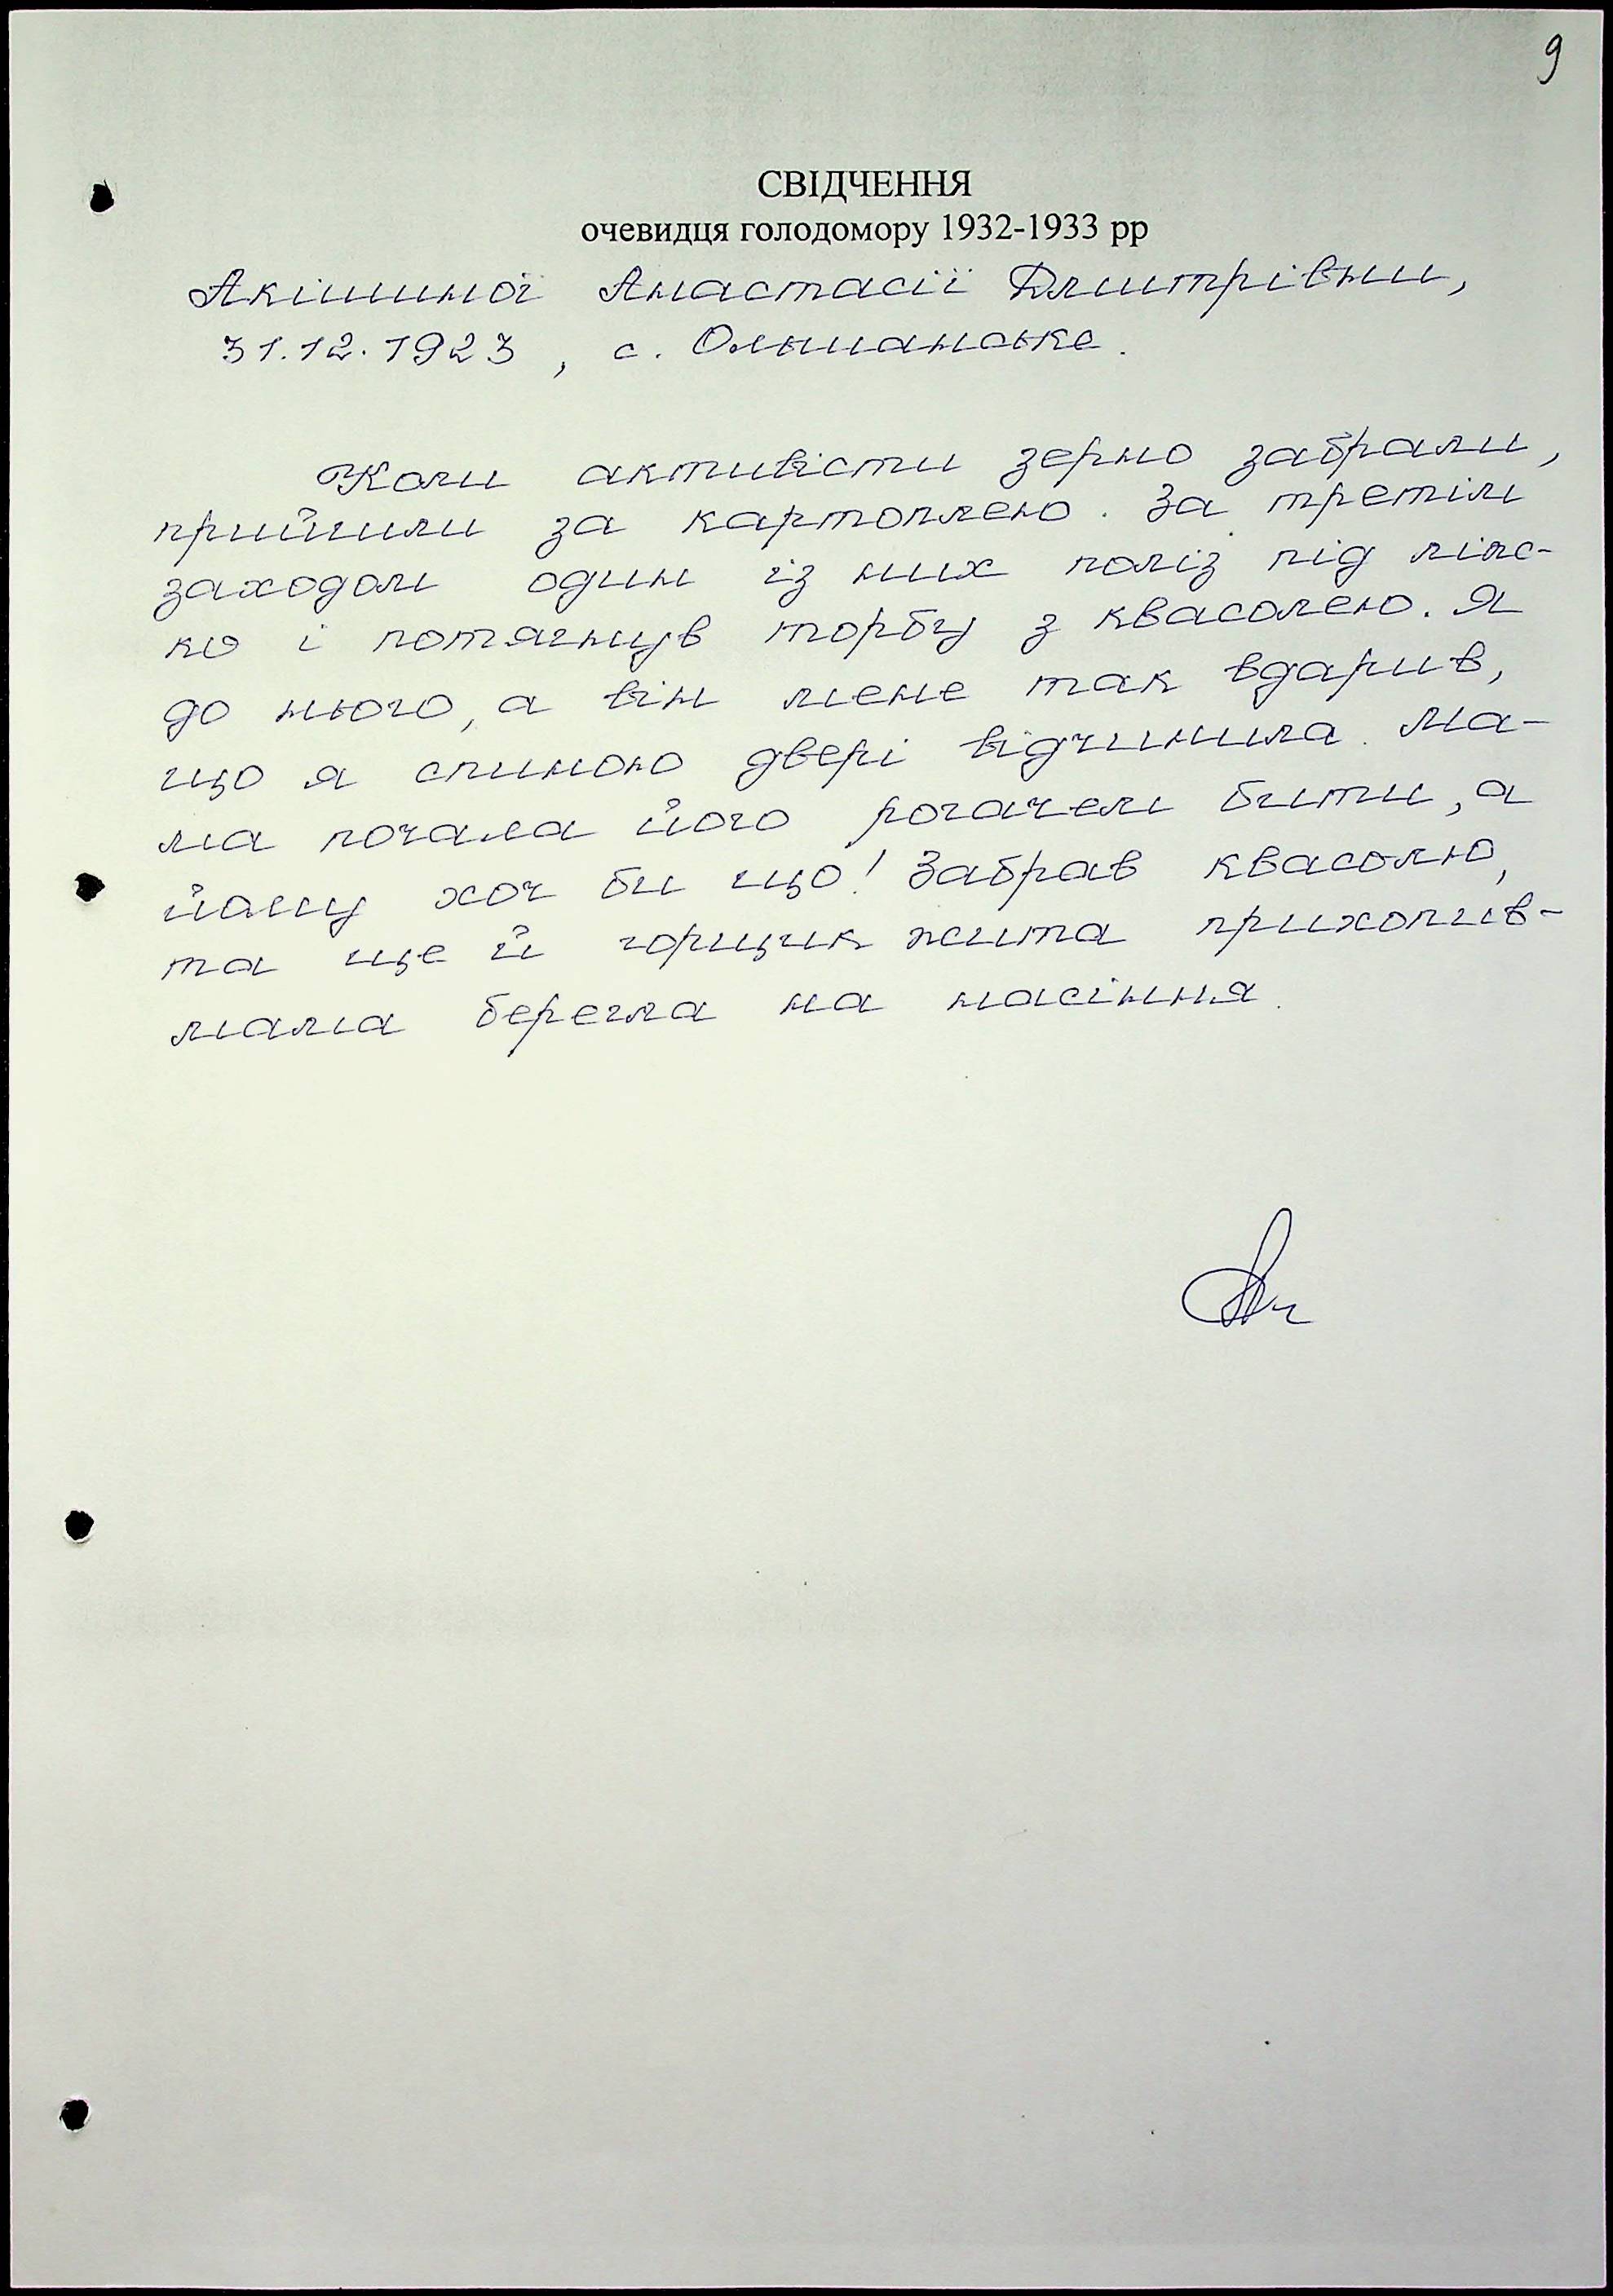 9
СВІДЧЕННЯ
очевидця голодомору 1932-1933 рр
Акішиної Анастасії Дмитрівни,
31.12.1923, с. Ольшанське.
Коли активісти зерно забрали,
прийшли за картоплею. За третім
заходом один із них поліз під ліж-
ко і потягнув торбу з квасолею. Я
до нього, а він мене так вдарив,
що я спиною двері відчинила. Ма-
ма почала його рогачем бити, а
йому хоч би що! Забрав квасолю,
та ще й горщик жита прихопив -
мама берегла на насіння.